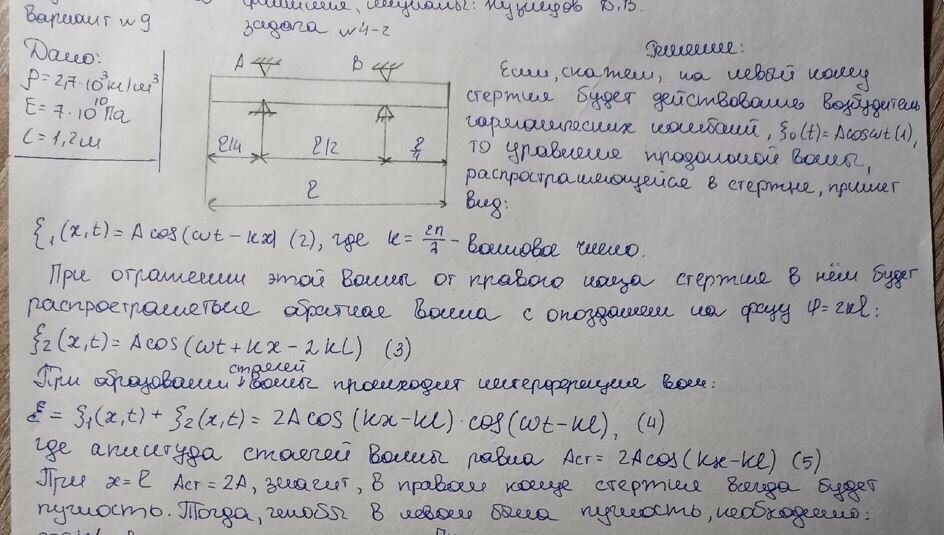 фамилия, инициалы: Кузнецов Д.В.
Вариант №9
задача №4-2
Дано:
ρ=2,7·10³кг/м³
E=7·10¹⁰Па
l=1,2м
A
B
l/4
l/2
l/4
l
Решение:
Если, скажем, на левый конец
стержня будет действовать возбудитель
гармонических колебаний, ξ₀(t)=Acosωt(1),
то уравнение продольной волны,
распространяющейся в стержне, примет
вид:
ξ₁(x,t)=Acos(ωt-kx) (2), где k=2π/λ - волновое число.
При отражении этой волны от правого конца стержня в нём будет
распространяться обратная волна с опозданием на фазу φ=2kl:
ξ₂(x,t)=Acos(ωt+kx-2kl) (3)
При образовании стоячей волны происходит интерференция волн:
ξ=ξ₁(x,t)+ξ₂(x,t)=2Acos(kx-kl)·cos(ωt-kl), (4)
где амплитуда стоячей волны равна Aст=2Acos(kx-kl) (5)
При x=l Aст=2A, значит, в правом конце стержня всегда будет
пучность. Тогда, чтобы в левом была пучность, необходимо: